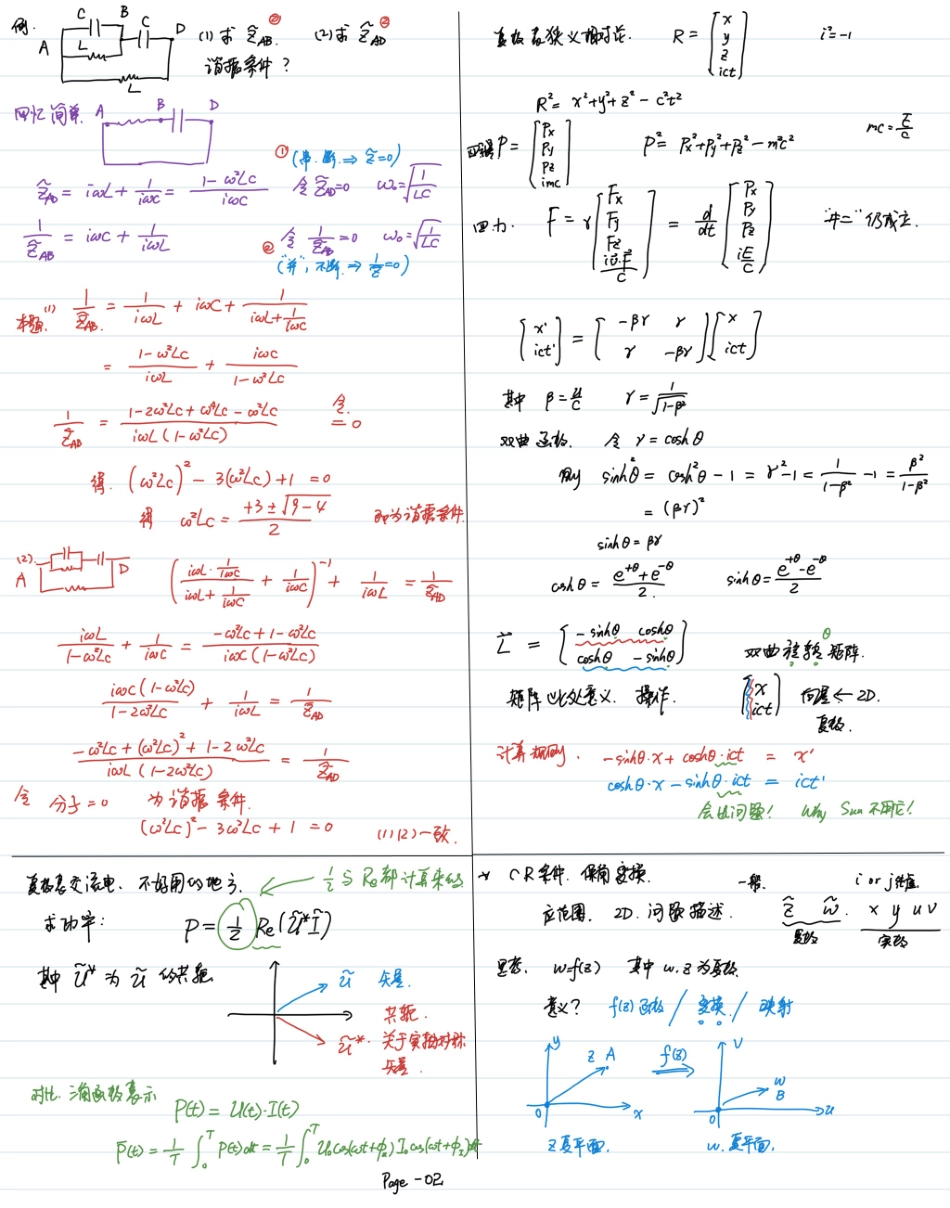 例.
C B C D
A L
L
(1) 求 Z̃_AB ② (2) 求 Z̃_AD ②
谐振条件？
回忆简单. A B D
① (串. 断. ⇒ Z̃=0)
Z̃_AD = iωL + 1/(iωC) = (1-ω²LC)/(iωC) 令 Z̃_AD=0 ω₀=√(1/LC)
1/Z̃_AB = iωC + 1/(iωL) ② 令 1/Z̃_AB=0 ω₀=√(1/LC)
("并", 不断. ⇒ 1/Z̃=0)
本题. (1) 1/Z̃_AB. = 1/(iωL) + iωC + 1/(iωL+1/(iωC))
= (1-ω²LC)/(iωL) + iωC/(1-ω²LC)
1/Z̃_AD = (1-2ω²LC+ω⁴LC-ω²LC)/(iωL(1-ω²LC)) 令. = 0
得. (ω²LC)² - 3(ω²LC)+1 = 0
得 ω²LC = (+3±√(9-4))/2 即为谐振条件.
(2). A D
((iωL·1/(iωC))/(iωL+1/(iωC)) + 1/(iωC))⁻¹ + 1/(iωL) = 1/Z̃_AD
iωL/(1-ω²LC) + 1/(iωC) = (-ω²LC+1-ω²LC)/(iωC(1-ω²LC))
iωC(1-ω²LC)/(1-2ω²LC) + 1/(iωL) = 1/Z̃_AD
(-ω²LC+(ω²LC)²+1-2ω²LC)/(iωL(1-2ω²LC)) = 1/Z̃_AD
令 分子=0 为谐振条件.
(ω²LC)² - 3ω²LC + 1 = 0 (1)(2)一致.
复数表狭义相对论. R = [x y z ict] i²=-1
R² = x²+y²+z² - c²t²
P = [Px Py Pz imc] P² = Px²+Py²+Pz²-m²c² mc=E/c
四力. F = γ[Fx Fy Fz iv⃗·F⃗/c] = d/dt [Px Py Pz iE/c] "牛二"仍成立.
[x' ict'] = [-βγ γ γ -βγ][x ict]
其中 β=u/c γ=1/√(1-β²)
双曲函数. 令 γ = cosh θ
则 sinh²θ = cosh²θ - 1 = γ²-1 = 1/(1-β²) -1 = β²/(1-β²)
= (βγ)²
sinhθ = βγ
coshθ = (e^{+θ}+e^{-θ})/2. sinhθ = (e^{+θ}-e^{-θ})/2
L = [-sinhθ coshθ coshθ -sinhθ] 双曲旋转 θ 矩阵.
矩阵 此处意义. 操作. [x ict] 向量 ← 2D.
复数.
计算规则. -sinhθ·x + coshθ·ict = x'
coshθ·x - sinhθ·ict = ict'
会出问题! Why Sun 不用它!
复数表交流电. 不好用的地方. ← 1/2 与 Re 都计算来的
求功率: P = 1/2 Re(Ũ*Ĩ)
其中 Ũ* 为 Ũ 的共轭
ũ 矢量.
共轭.
ũ*. 关于实轴对称
矢量.
对比. 三角函数表示
P(t) = U(t)·I(t)
P̄(t) = 1/T ∫₀ᵀ P(t)dt = 1/T ∫₀ᵀ U₀cos(ωt+φ₂)I₀cos(ωt+φ₂)dt
* CR条件. 保角变换. 一般. i or j
应范围. 2D. 问题描述. z̃ w̃. x y u v
复数 实数
思考. w=f(z) 其中 w.z 为复数.
意义? f(z)函数 / 变换. / 映射
y z A f(z) v w B
0 x 0 u
z复平面. w.复平面.
Page -02